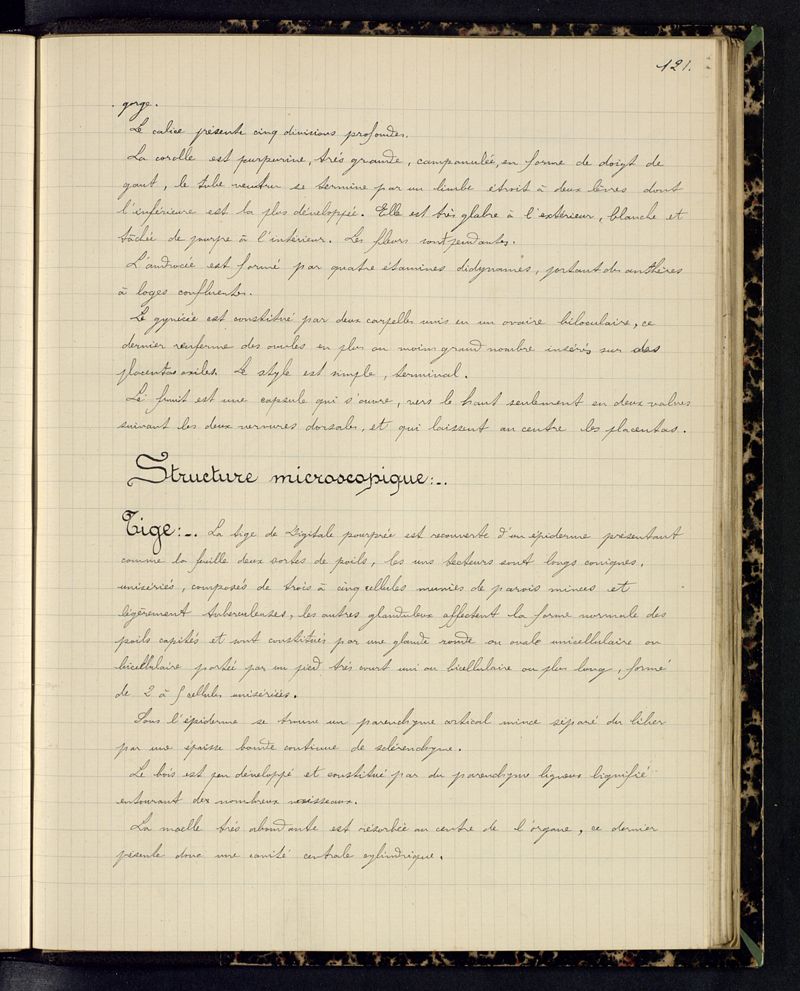 121.
gorge.
Le calice présente cinq divisions profondes.
La corolle est purpurine, très grande, campanulée, en forme de doigt de
gant, le tube ventru se termine par un limbe étroit à deux lèvres dont
l'inférieure est la plus développée. Elle est très glabre à l'extérieur, blanche et
tâchée de pourpre à l'intérieur. Les fleurs sont pendantes.
L'androcée est formé par quatre étamines didynames, portant des anthères
à loges confluentes.
Le gynécée est constitué par deux carpelles unis en un ovaire biloculaire, ce
dernier renferme des ovules en plus ou moins grand nombre insérés sur des
placentas axiles. Le style est simple, terminal.
Le fruit est une capsule qui s'ouvre, vers le haut seulement en deux valves
suivant les deux nervures dorsales, et qui laissent au centre les placentas.
Structure microscopique:-.
Tige:-. La tige de Digitale pourprée est recouverte d'un épiderme présentant
comme la feuille deux sortes de poils, les uns tecteurs sont longs coniques,
unisériés, composés de trois à cinq cellules munies de parois minces et
légèrement tuberculeuses, les autres glanduleux affectent la forme normale des
poils capités et sont constitués par une glande ronde ou ovale unicellulaire ou
bicellulaire portée par un pied très court uni ou bicellulaire ou plus long, formé
de 2 à 5 cellules unisériées.
Sous l'épiderme se trouve un parenchyme cortical mince séparé du liber
par une épaisse bande continue de sclérenchyme.
Le bois est peu développé et constitué par du parenchyme ligneux lignifié
entourant des nombreux vaisseaux.
La moelle très abondante est résorbée au centre de l'organe, ce dernier
présente donc une cavité centrale cylindrique.